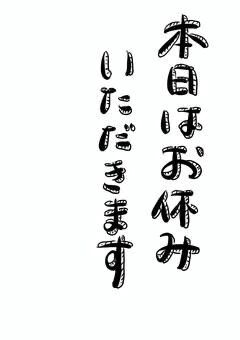 本日はお休み
いただきます